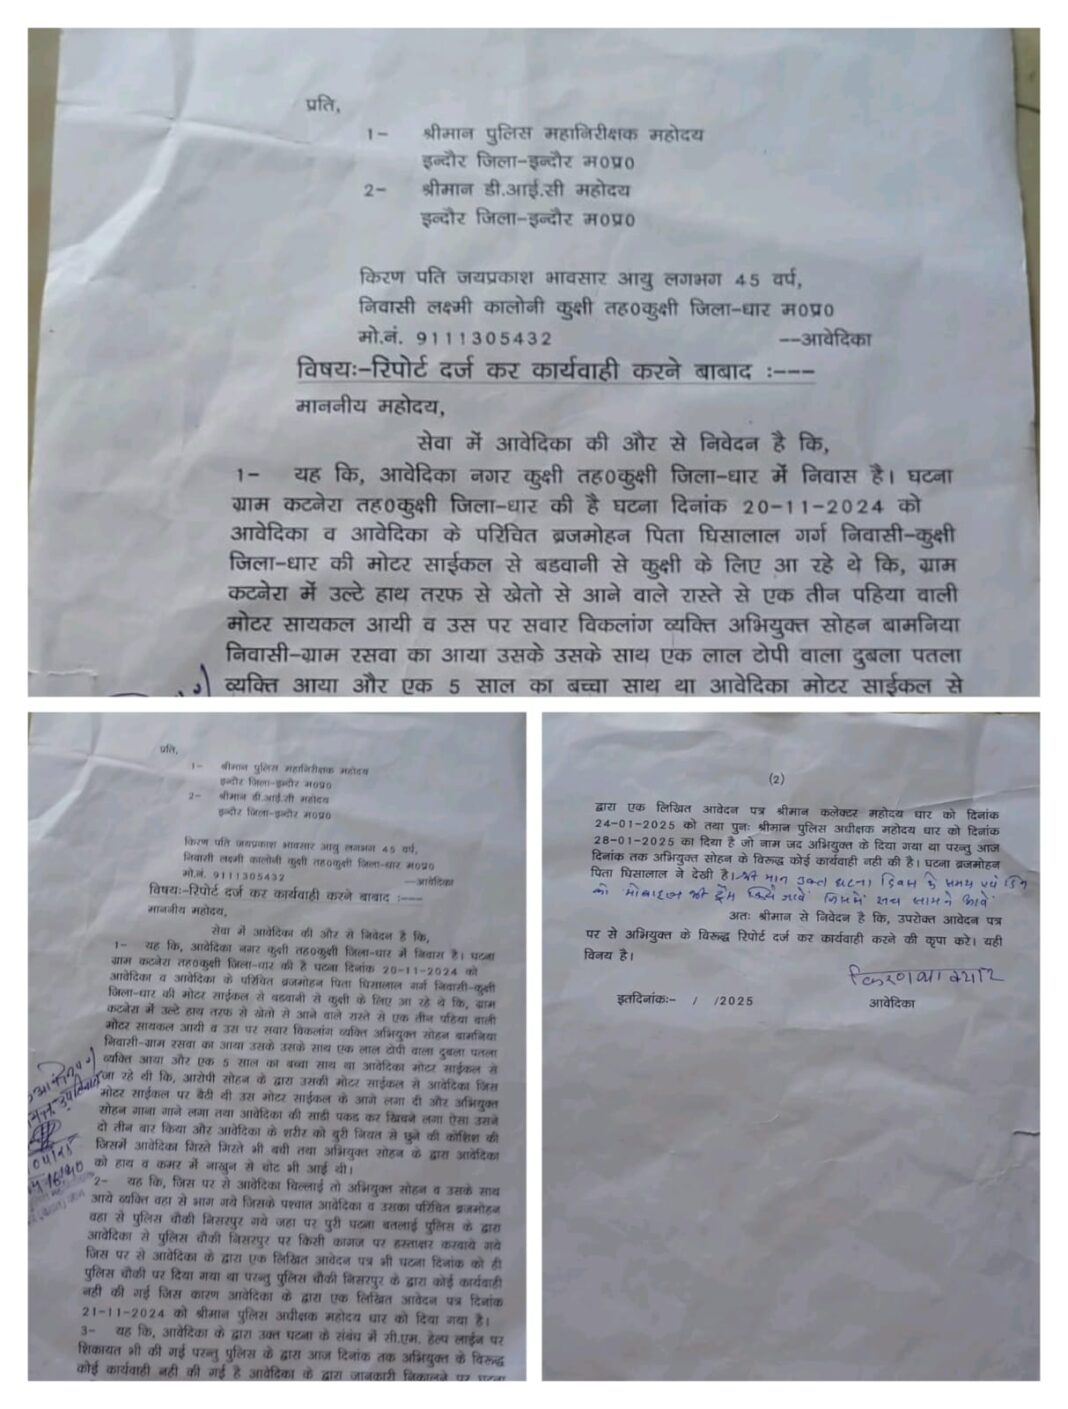 प्रति,
1- श्रीमान पुलिस महानिरीक्षक महोदय
इन्दौर जिला-इन्दौर म0प्र0
2- श्रीमान डी.आई.सी महोदय
इन्दौर जिला-इन्दौर म0प्र0
किरण पति जयप्रकाश भावसार आयु लगभग 45 वर्ष,
निवासी लक्ष्मी कालोनी कुक्षी तह0कुक्षी जिला-धार म0प्र0
मो.नं. 9111305432 --आवेदिका
विषयः-रिपोर्ट दर्ज कर कार्यवाही करने बाबाद :---
माननीय महोदय,
सेवा में आवेदिका की और से निवेदन है कि,
1- यह कि, आवेदिका नगर कुक्षी तह0कुक्षी जिला-धार में निवास है। घटना
ग्राम कटनेरा तह0कुक्षी जिला-धार की है घटना दिनांक 20-11-2024 को
आवेदिका व आवेदिका के परिचित ब्रजमोहन पिता घिसालाल गर्ग निवासी-कुक्षी
जिला-धार की मोटर साईकल से बडवानी से कुक्षी के लिए आ रहे थे कि, ग्राम
कटनेरा में उल्टे हाथ तरफ से खेतो से आने वाले रास्ते से एक तीन पहिया वाली
मोटर सायकल आयी व उस पर सवार विकलांग व्यक्ति अभियुक्त सोहन बामनिया
निवासी-ग्राम रसवा का आया उसके उसके साथ एक लाल टोपी वाला दुबला पतला
व्यक्ति आया और एक 5 साल का बच्चा साथ था आवेदिका मोटर साईकल से
प्रति,
1- श्रीमान पुलिस महानिरीक्षक महोदय
इन्दौर जिला-इन्दौर म0प्र0
2- श्रीमान डी.आई.सी महोदय
इन्दौर जिला-इन्दौर म0प्र0
किरण पति जयप्रकाश भावसार आयु लगभग 45 वर्ष,
निवासी लक्ष्मी कालोनी कुक्षी तह0कुक्षी जिला-धार म0प्र0
मो.नं. 9111305432 --आवेदिका
विषयः-रिपोर्ट दर्ज कर कार्यवाही करने बाबाद :---
माननीय महोदय,
सेवा में आवेदिका की और से निवेदन है कि,
1- यह कि, आवेदिका नगर कुक्षी तह0कुक्षी जिला-धार में निवास है। घटना
ग्राम कटनेरा तह0कुक्षी जिला-धार की है घटना दिनांक 20-11-2024 को
आवेदिका व आवेदिका के परिचित ब्रजमोहन पिता घिसालाल गर्ग निवासी-कुक्षी
जिला-धार की मोटर साईकल से बडवानी से कुक्षी के लिए आ रहे थे कि, ग्राम
कटनेरा में उल्टे हाथ तरफ से खेतो से आने वाले रास्ते से एक तीन पहिया वाली
मोटर सायकल आयी व उस पर सवार विकलांग व्यक्ति अभियुक्त सोहन बामनिया
निवासी-ग्राम रसवा का आया उसके उसके साथ एक लाल टोपी वाला दुबला पतला
व्यक्ति आया और एक 5 साल का बच्चा साथ था आवेदिका मोटर साईकल से
जा रहे थी कि, आरोपी सोहन के द्वारा उसकी मोटर साईकल से आवेदिका जिस
मोटर साईकल पर बैठी थी उस मोटर साईकल के आगे लगा दी और अभियुक्त
सोहन गाना गाने लगा तथा आवेदिका की साडी पकड कर खिचने लगा ऐसा उसने
दो तीन बार किया और आवेदिका के शरीर को बुरी नियत से छुने की कोशिश की
जिसमें आवेदिका गिरते गिरते भी बची तथा अभियुक्त सोहन के द्वारा आवेदिका
को हाथ व कमर में नाखुन से चोट भी आई थी।
2- यह कि, जिस पर से आवेदिका चिल्लाई तो अभियुक्त सोहन व उसके साथ
आये व्यक्ति वहा से भाग गये जिसके पश्चात आवेदिका व उसका परिचित ब्रजमोहन
वहा से पुलिस चौकी निसरपुर गये जहा पर पुरी घटना बतलाई पुलिस के द्वारा
आवेदिका से पुलिस चौकी निसरपुर पर किसी कागज पर हस्ताक्षर करवाये गये
जिस पर से आवेदिका के द्वारा एक लिखित आवेदन पत्र भी घटना दिनांक को ही
पुलिस चौकी पर दिया गया था परन्तु पुलिस चौकी निसरपुर के द्वारा कोई कार्यवाही
नही की गई जिस कारण आवेदिका के द्वारा एक लिखित आवेदन पत्र दिनांक
21-11-2024 को श्रीमान पुलिस अधीक्षक महोदय धार को दिया गया है।
3- यह कि, आवेदिका के द्वारा उक्त घटना के संबंध में सी.एम. हेल्प लाईन पर
शिकायत भी की गई परन्तु पुलिस के द्वारा आज दिनांक तक अभियुक्त के विरूद्ध
कोई कार्यवाही नही की गई है आवेदिका के द्वारा जानकारी निकालने पर घटना
(2)
द्वारा एक लिखित आवेदन पत्र श्रीमान कलेक्टर महोदय धार को दिनांक
24-01-2025 को तथा पुनः श्रीमान पुलिस अधीक्षक महोदय धार को दिनांक
28-01-2025 का दिया है जो नाम जद अभियुक्त के दिया गया था परन्तु आज
दिनांक तक अभियुक्त सोहन के विरूद्ध कोई कार्यवाही नही की है। घटना ब्रजमोहन
पिता घिसालाल ने देखी है। श्री मान उक्त घटना दिवस के समय एवं दिन
को मोबाइल की ट्रेस किये जावे जिसमें सच सामने आवे
अतः श्रीमान से निवेदन है कि, उपरोक्त आवेदन पत्र
पर से अभियुक्त के विरूद्ध रिपोर्ट दर्ज कर कार्यवाही करने की कृपा करे। यही
विनय है।
इतदिनांकः- / /2025 आवेदिका